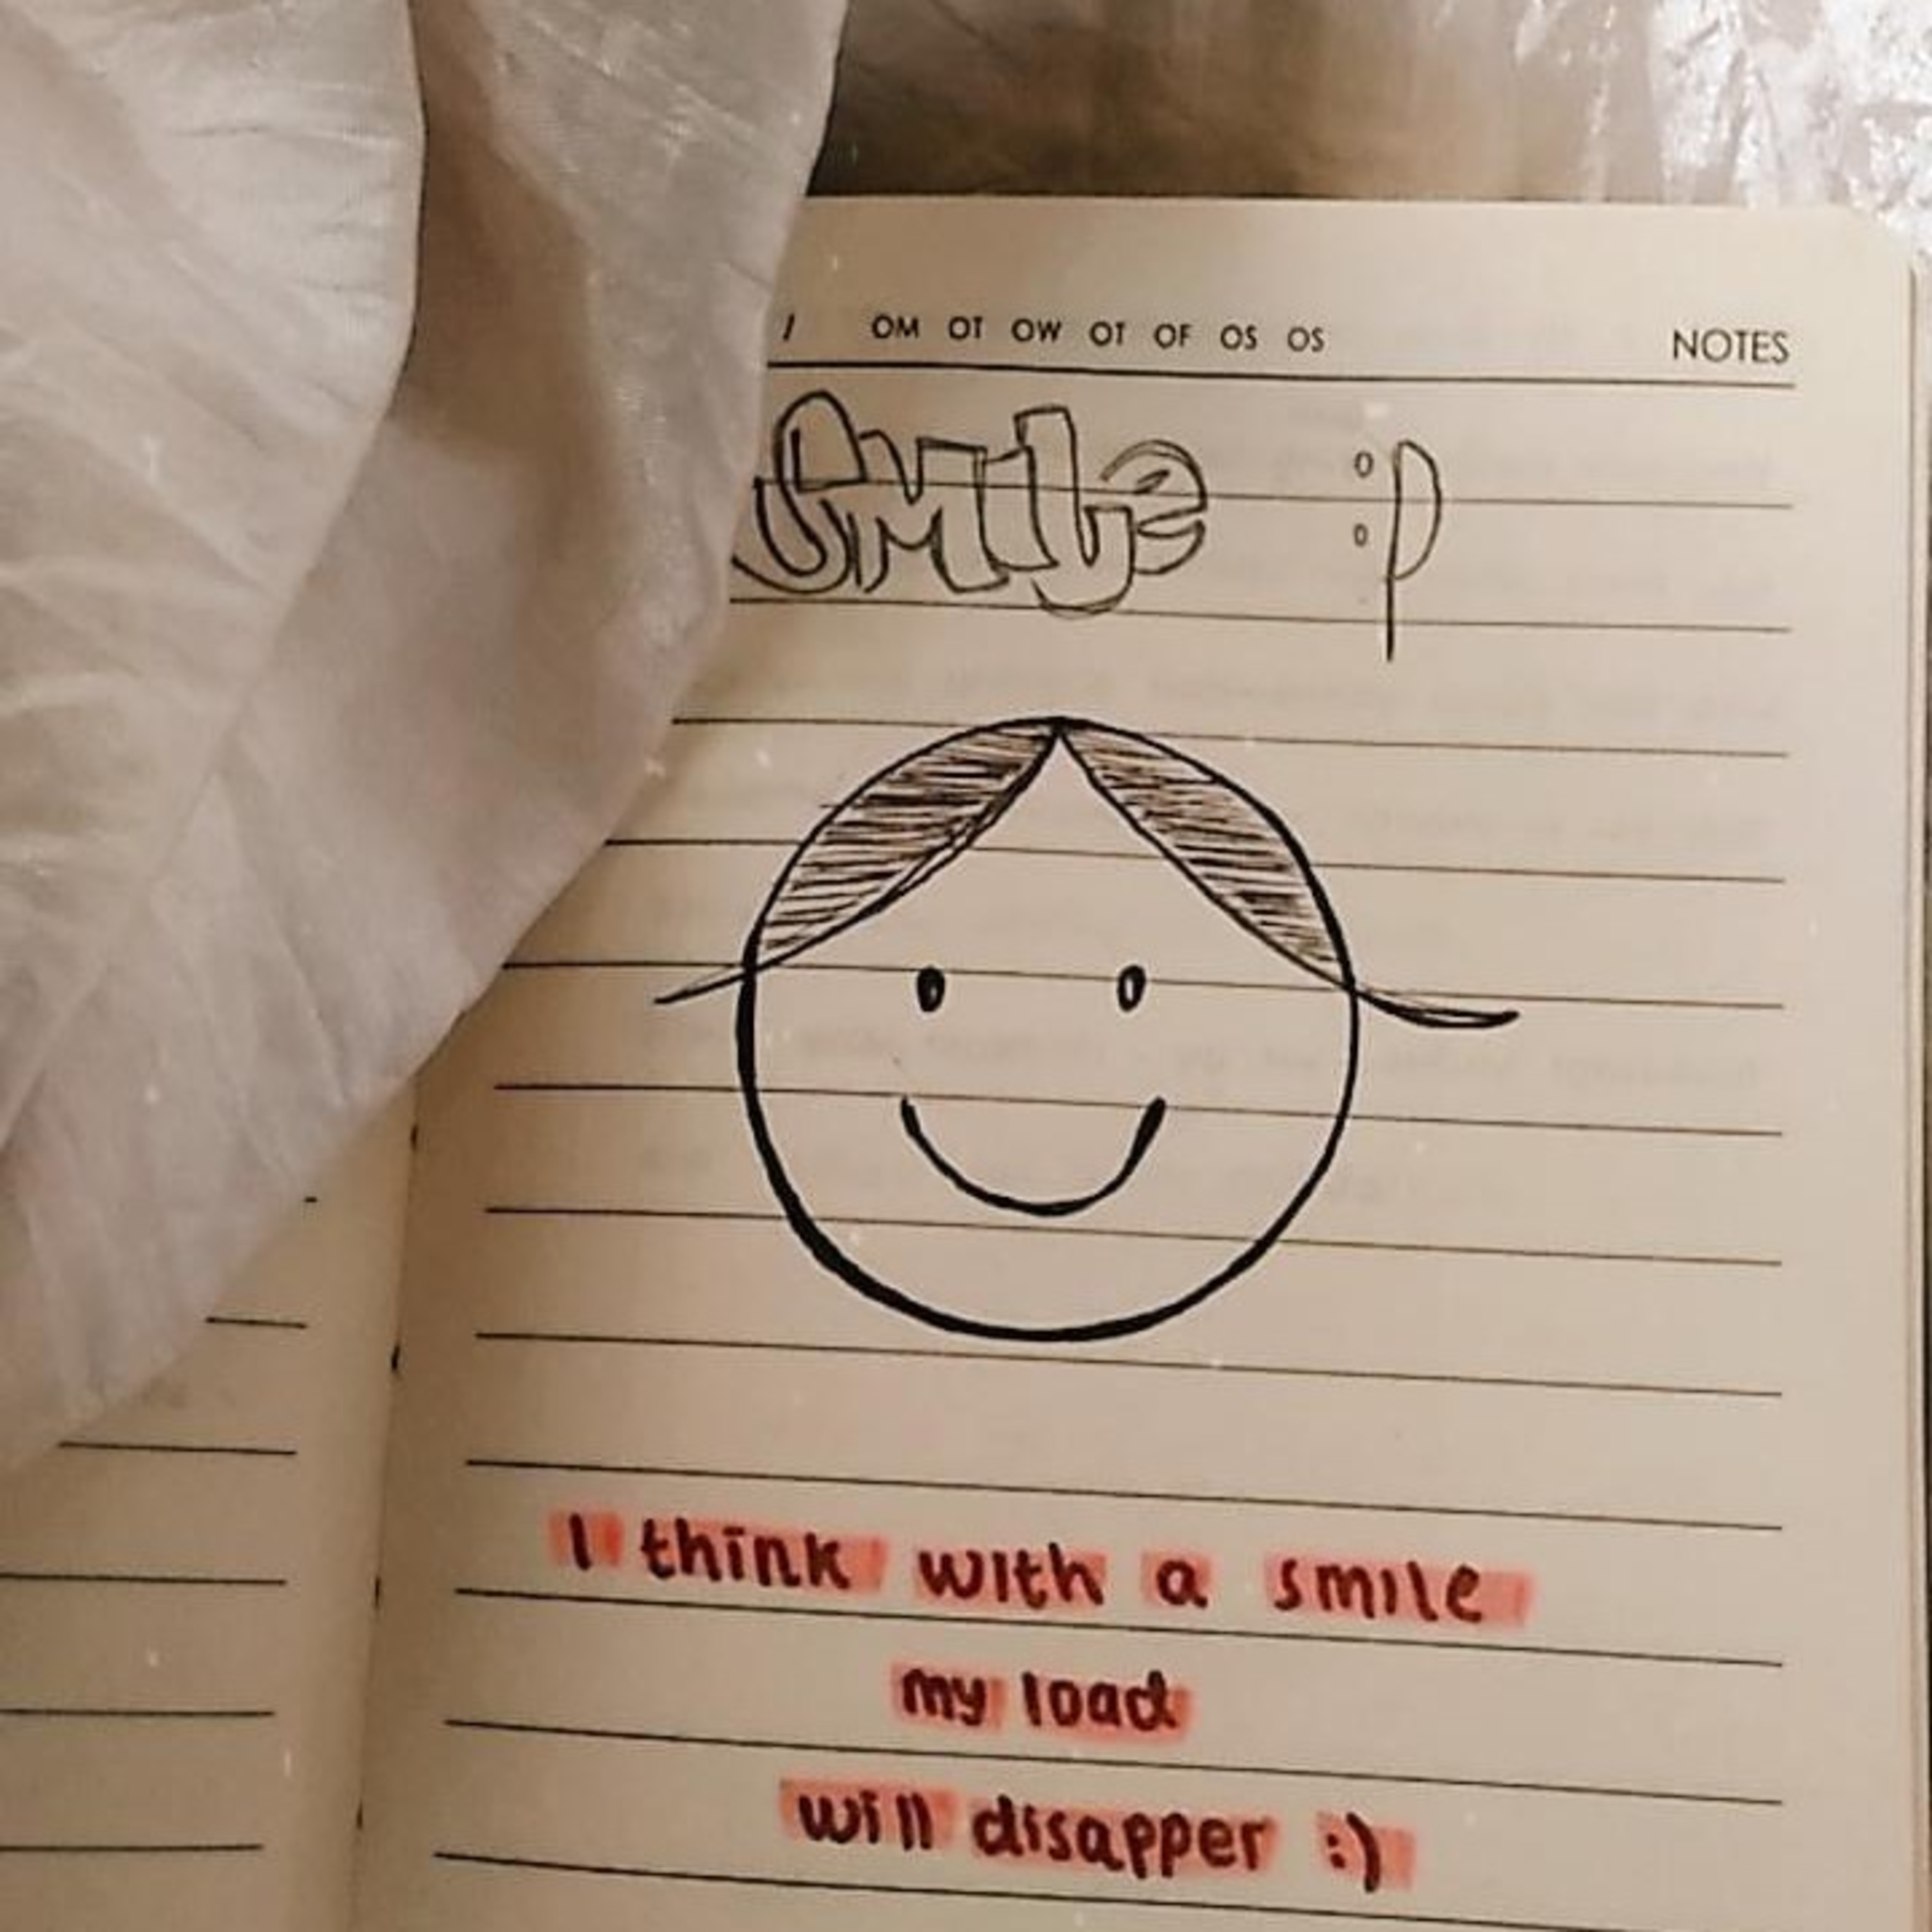 / OM OT OW OT OF OS OS NOTES
SMILe :p
I think with a smile
my load
will disapper :)